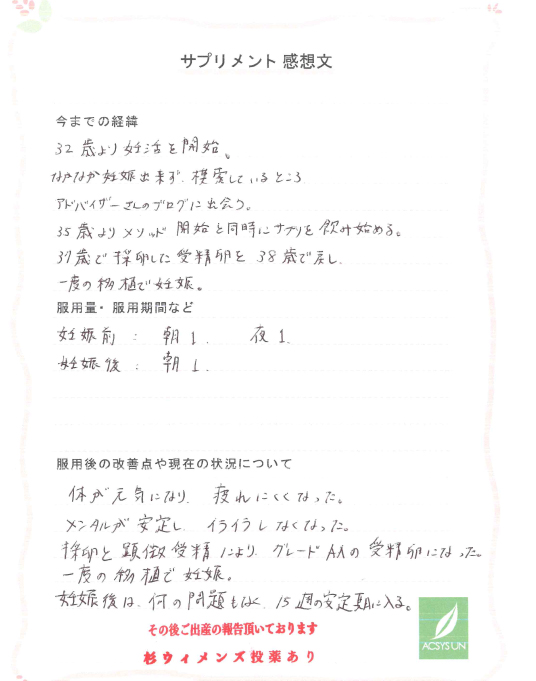 サプリメント 感想文
今までの経緯
32歳より妊活を開始。
なかなか妊娠出来ず、模索しているところ
アドバイザーさんのブログに出会う。
35歳よりメソッド開始と同時にサプリを飲み始める。
37歳で採卵した受精卵を38歳で戻し、
一度の移植で妊娠。
服用量・服用期間など
妊娠前：朝1、夜1.
妊娠後：朝1.
服用後の改善点や現在の状況について
体が元気になり、疲れにくくなった。
メンタルが安定し、イライラしなくなった。
採卵と顕微受精により、グレードAAの受精卵になった。
一度の移植で妊娠。
妊娠後は、何の問題もなく、15週の安定期に入る。
その後ご出産の報告頂いております
杉ウィメンズ投薬あり
ACSYSUN